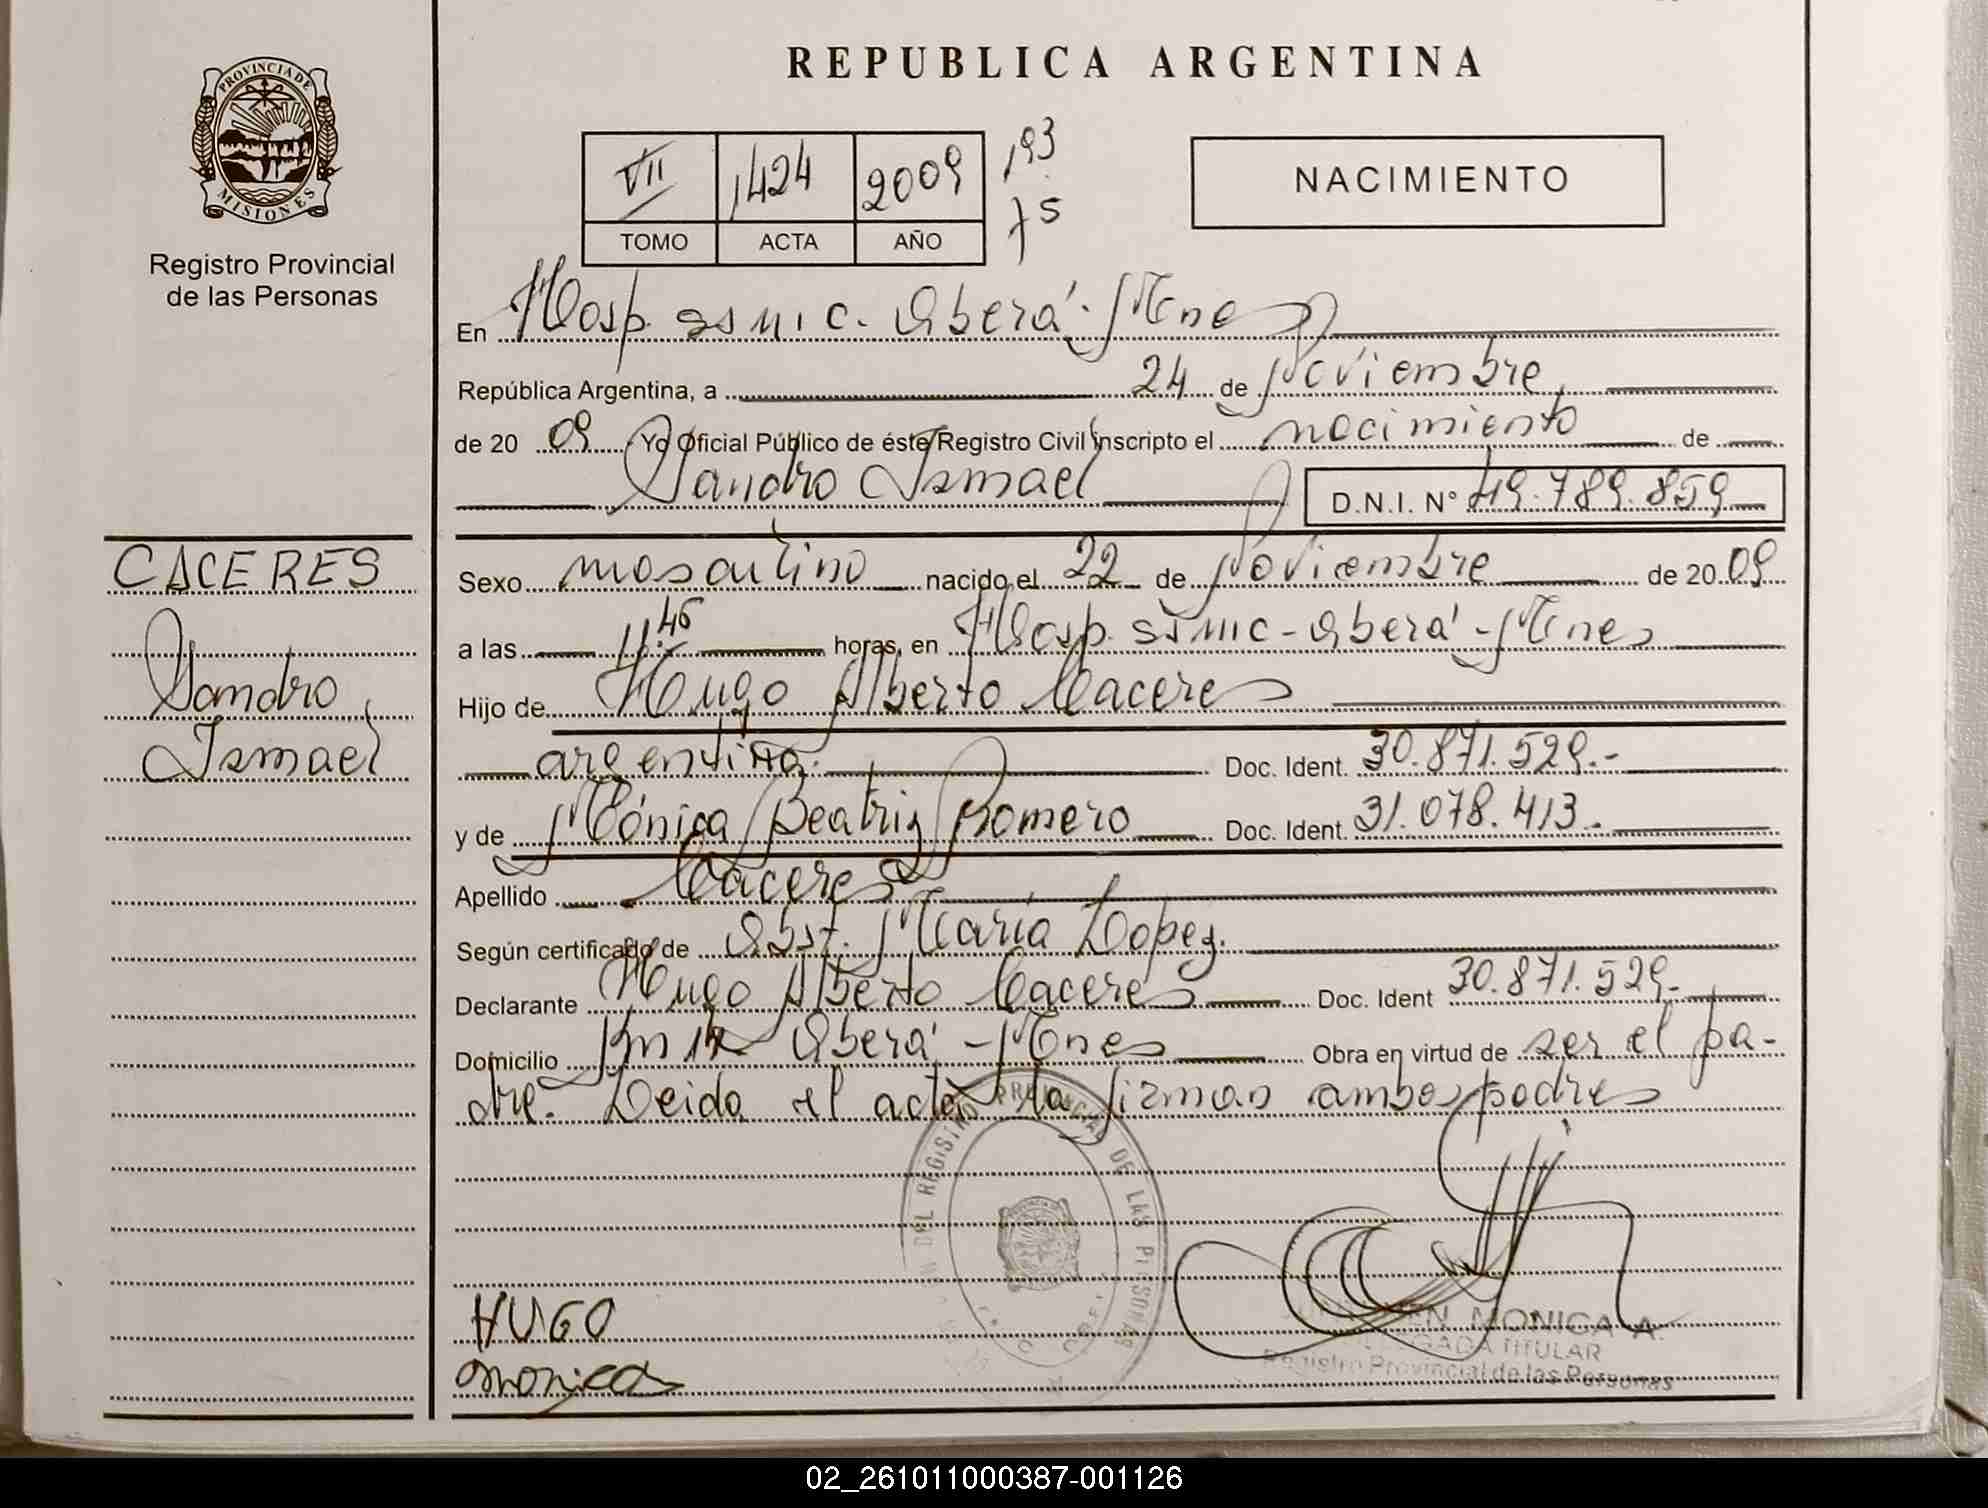 REPUBLICA ARGENTINA
PROVINCIA DE MISIONES
Registro Provincial
de las Personas
VII 1424 2009 193
75
TOMO ACTA AÑO
NACIMIENTO
En Hosp. SSMIC. Oberá. Mnes
República Argentina, a 24 de Noviembre
de 20 09 Yo Oficial Público de éste Registro Civil inscripto el nacimiento de
Sandro Ismael D.N.I. N° 49.789.859
CACERES
Sandro
Ismael
Sexo masculino nacido el 22 de Noviembre de 20 09
a las 11:45 horas, en Hosp. SSMIC - Oberá - Mnes
Hijo de Hugo Alberto Caceres
argentina. Doc. Ident. 30.871.529.-
y de Mónica Beatriz Romero Doc. Ident. 31.078.413.-
Apellido Caceres
Según certificado de Obst. María Lopez.
Declarante Hugo Alberto Caceres Doc. Ident 30.871.529.-
Domicilio Km Oberá - Mnes Obra en virtud de ser el pa-
dre. Leida el acta la firman ambos padres
DEL REGISTRO PROVINCIAL DE LAS PERSONAS
HUGO
monica
MONICA A.
TITULAR
Registro Provincial de las Personas
02_261011000387-001126